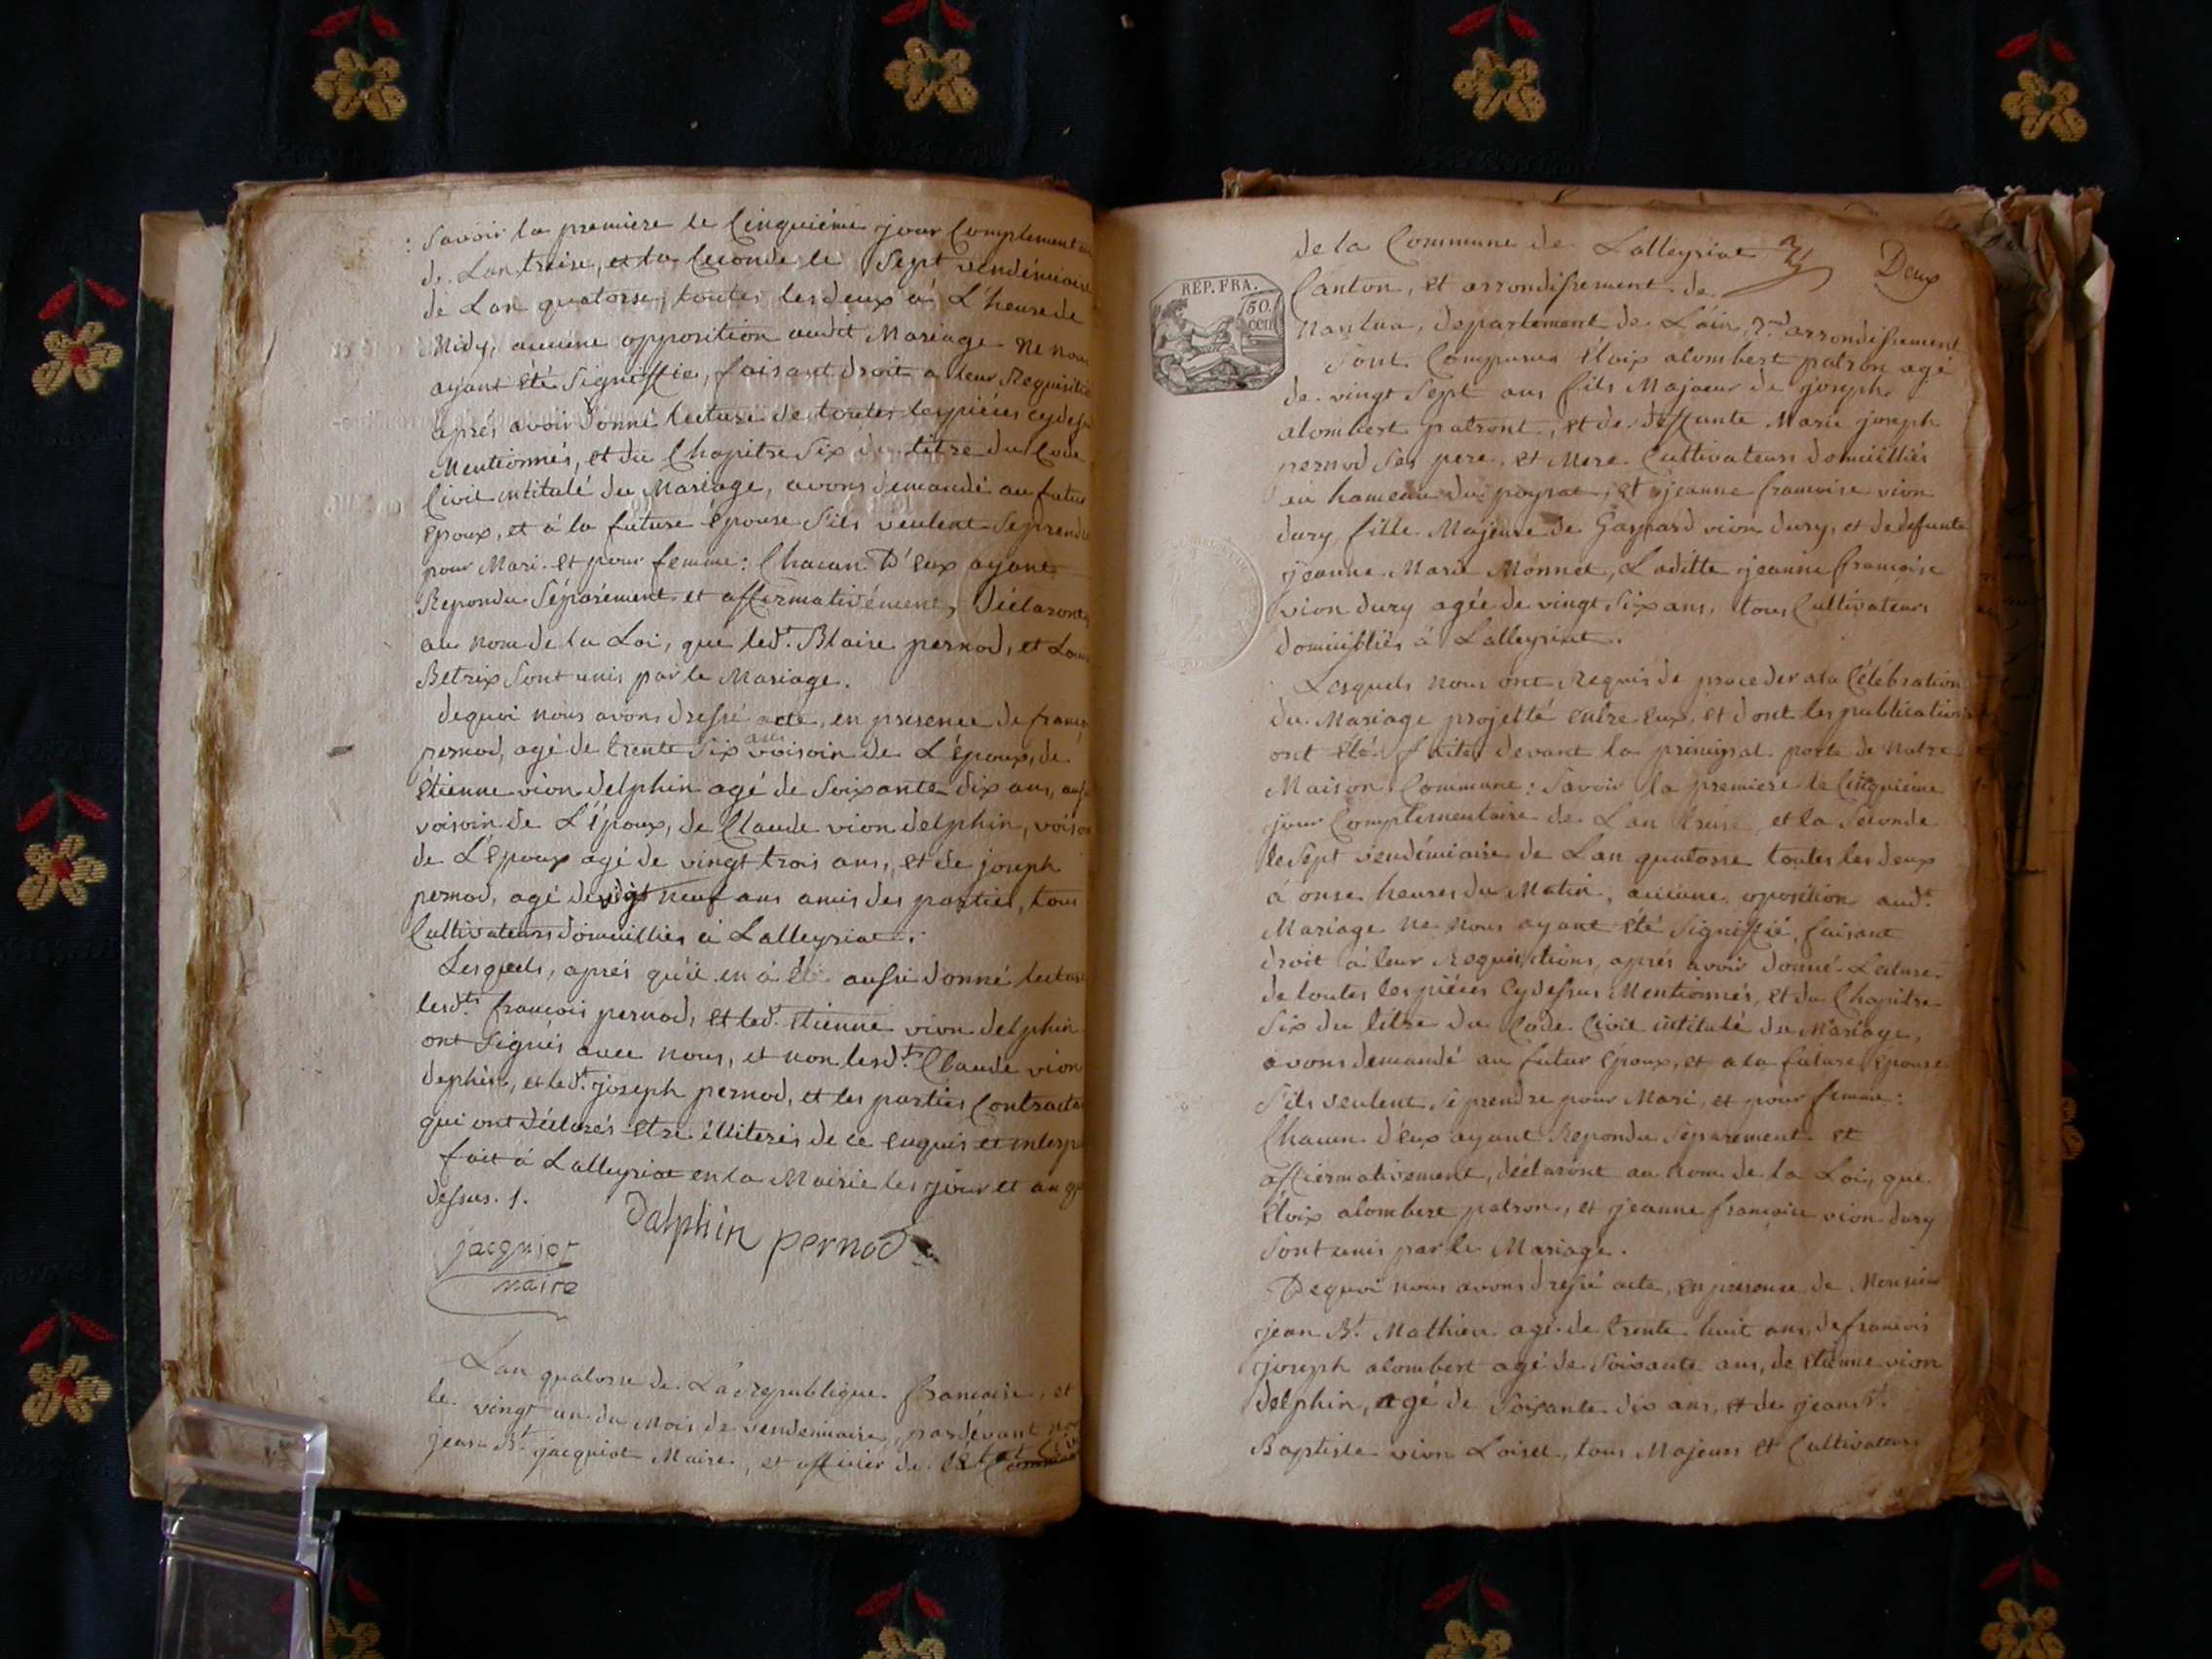 : Savoir la premiere le Cinquiéme jour Complement
de Lan treise, et la seconde le Sept vendémiaire
de Lan quatorse, toutes les deux à L'heure de
Midy, aucune opposition audit Mariage ne nous
ayant été Signiffie, faisant droit a leur Requisitio
aprés avoir donné lecture de toutes les piéces cydess
Mentionnés, et du Chapitre Six du titre du Code
Civil intitulé du Mariage, avons demandé au futur
Epoux, et à la future épouse S'ils veulent Se prendre
pour Mari et pour femme: Chacun D'eux ayant
Repondu Séparément et affirmativément, déclarons
au nom de la Loi, que led.t Blaise pernod, et Lou
Betrix Sont unis par le Mariage.
dequoi nous avons dressé acte, en presence de franço
pernod, agé de trente Six ans voisoin de L'époux, de
Etienne vion delphin agé de Soixante dix ans, auss
voisoin de L'époux, de Claude vion delphin, voiso
de L'époux agé de vingt trois ans, et de joseph
pernod, agé de vigt neuf ans amis des parties, tous
Cultivateurs domicilliés à Lalleyriat.
Lesquels, aprés qu'il en à été aussi donné lectur
lesd.ts francois pernod, et led.t etienne vion delphin
ont Signés avec nous, et non lesd.ts Claude vion
dephin, et led.t joseph pernod, et les parties Contracta
qui ont déclarés etre illiterés de ce enquis et interp
fait à Lalleyriat en la Mairie les jour et an q
dessus. /.
Dalphin pernod
jacquiot
maire
Lan quatorse de La republique francaise, et
le vingt un du mois de vendemiaire, pardévant no
jean B.t jacquiot Maire, et officier de l'état Civ
de la Commune de Lalleyriat
Deux
REP. FRA.
50
cen
Canton, et arrondissement de
Nantua, departement de L'ain, arrondissement
Sont Comparus Éloix alombert patron agé
de vingt Sept ans fils Majaeur de joseph
alombert patront, et de deffunte Marie joseph
pernod Ses pere, et Mere Cultivateurs domicilliés
au hameau du poyzat, et jeanne francoise vion
dury fille Majeure de Gaspard vion dury, et de defunte
jeanne Marie Monnet, Laditte jeanne francoise
vion dury agée de vingt Six ans, tous Cultivateurs
domicilliés à Lalleyriat.
Lesquels nous ont Requis de proceder a la Célébration
du Mariage projetté entre eux, et dont les publications
ont été faites devant la principal porte de notre
Maison Commune: Savoir la premiere le Cinquiéme
jour Complementaire de Lan treise et la Seconde
le Sept vendémiaire de Lan quatorse toutes les deux
à onse heures du Matin, aucune oposition aud.t
Mariage ne nous ayant été Signiffié, faisant
droit à leur Requisitions, aprés avoir donné Lecture
de toutes les piéces Cydessus Mentionnés, et du Chapitre
Six du titre du Code Civil intitulé du Mariage,
avons demandé au futur Epoux, et a la future Epouse
S'ils veulent Se prendre pour Mari, et pour femme:
Chacun d'eux ayant Repondu Séparement et
affiermativement, déclaront au nom de la Loi, que
éloix alombert patron, et jeanne francoise vion dury
Sont unis par le Mariage.
Dequoi nous avons dressé acte, en presence de Monsieur
jean B.t Mathieu agé de trente huit ans, de francois
joseph alombert agé de Soixante ans, de etienne vion
delphin, agé de Soixante dix ans, et de jean B.t
Baptiste vion Loisel, tous Majeurs et Cultivateurs